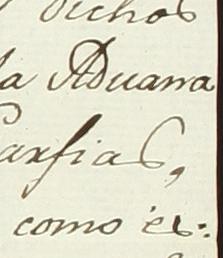 dichos
la Aduana
arfias,
como es: